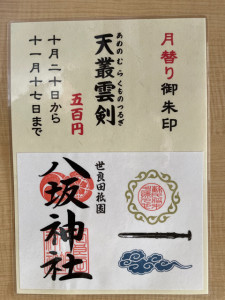 月替り御朱印
あめのむらくものつるぎ
天叢雲剣
五百円
十月二十日から
十一月十七日まで
世良田祇園
八坂神社